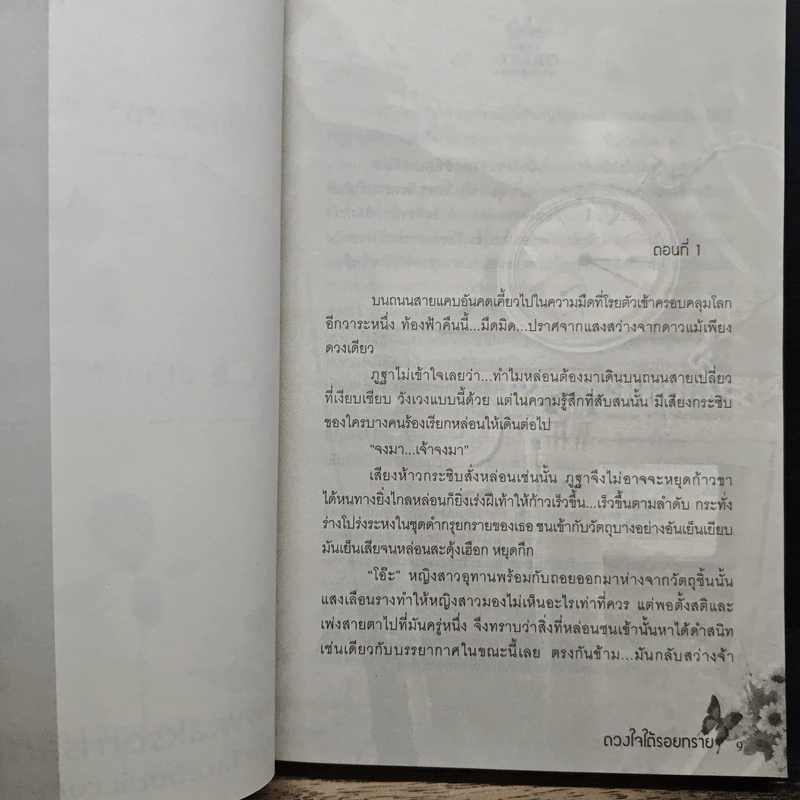 ตอนที่ 1
บนถนนสายแคบอันคดเคี้ยวไปในความมืดที่โรยตัวเข้าครอบคลุมโลก
อีกวาระหนึ่ง ท้องฟ้าคืนนี้...มืดมิด...ปราศจากแสงสว่างจากดาวแม้เพียง
ดวงเดียว
ภูฐาไม่เข้าใจเลยว่า...ทำไมหล่อนต้องมาเดินบนถนนสายเปลี่ยว
ที่เงียบเชียบ วังเวงแบบนี้ด้วย แต่ในความรู้สึกที่สับสนนั้น มีเสียงกระซิบ
ของใครบางคนร้องเรียกหล่อนให้เดินต่อไป
“จงมา...เจ้าจงมา”
เสียงห้าวกระซิบสั่งหล่อนเช่นนั้น ภูฐาจึงไม่อาจจะหยุดก้าวขา
ได้หนทางยิ่งไกลหล่อนก็ยิ่งเร่งฝีเท้าให้ก้าวเร็วขึ้น...เร็วขึ้นตามลำดับ กระทั่ง
ร่างโปร่งระหงในชุดดำกรุยกรายของเธอ ชนเข้ากับวัตถุบางอย่างอันเย็นเยียบ
มันเย็นเสียจนหล่อนสะดุ้งเฮือก หยุดกึก
“โอ๊ะ” หญิงสาวอุทานพร้อมกับถอยออกมาห่างจากวัตถุชิ้นนั้น
แสงเลือนรางทำให้หญิงสาวมองไม่เห็นอะไรเท่าที่ควร แต่พอตั้งสติและ
เพ่งสายตาไปที่มันครู่หนึ่ง จึงทราบว่าสิ่งที่หล่อนชนเข้านั้นหาได้ดำสนิท
เช่นเดียวกับบรรยากาศในขณะนี้เลย ตรงกันข้าม...มันกลับสว่างจ้า
ดวงใจใต้รอยทราย ๑